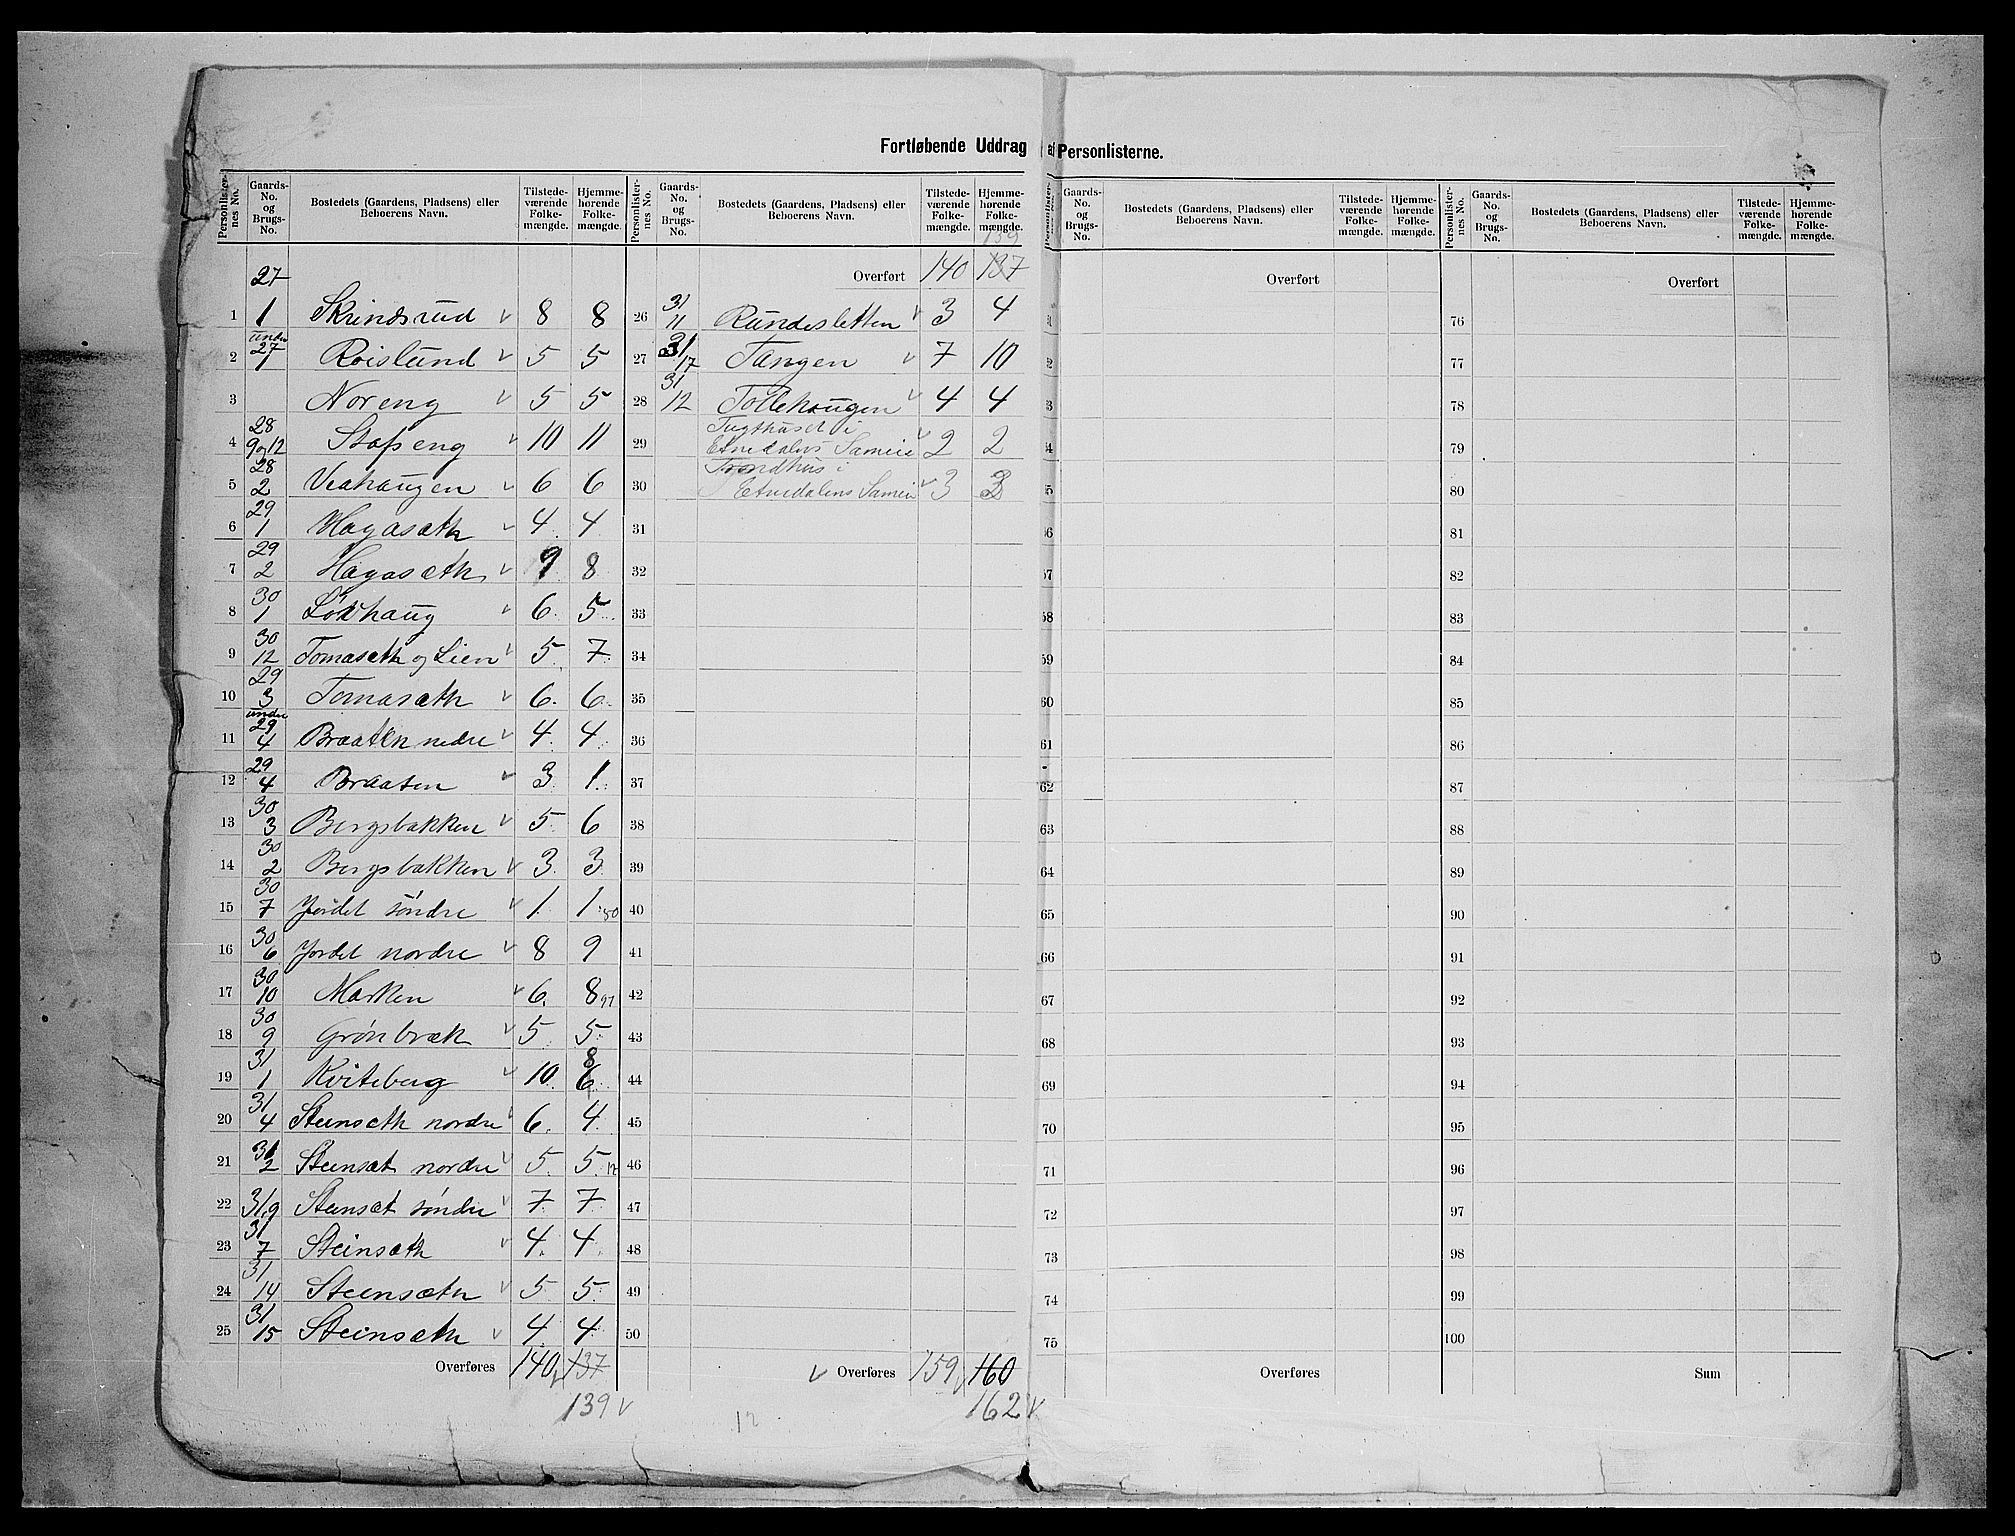 Fortløbende Uddrag af Personlisterne.
Personlister-nes No. Gaards-No. og Brugs-No. Bostedets (Gaardens, Pladsens) eller Beboerens Navn. Tilstede-værende Folke-mængde. Hjemme-hørende Folke-mængde.
Personlister-nes No. Gaards-No. og Brugs-No. Bostedets (Gaardens, Pladsens) eller Beboerens Navn. Tilstede-værende Folke-mængde. Hjemme-hørende Folke-mængde.
1 27/1 Skrindsrud 8 8
2 under 27/1 Roislund 5 5
3 Noreng 5 5
4 28/9 og 12 Stafseng 10 11
5 28/2 Veahaugen 6 6
6 29/1 Hagasæth 4 4
7 29/2 Hagasæth 9 8
8 30/1 Lodhaug 6 5
9 30/12 Tomasæth og Lien 5 7
10 29/3 Tomasæth 6 6
11 under 29/4 Braaten nedre 4 4
12 29/4 Braaten 3 1
13 30/3 Bergsbakken 5 6
14 30/2 Bergsbakken 3 3
15 30/7 Jordet søndre 1 1 80
16 30/6 Jordet nordre 8 9
17 30/10 Marken 6 8 97
18 30/9 Grønbræk 5 5
19 31/1 Kviteberg 10 6 8
20 31/4 Steinsæth nordre 6 4
21 31/2 Steinsæt nordre 5 5 12
22 31,9 Steinsæt søndre 7 7
23 31/7 Steinsæth 4 4
24 31/14 Steinsæth 5 5
25 31/15 Steinsæth 4 4
Overføres 140 137
139
139
Overført 140 137
26 31/11 Rundesletten 3 4
27 31/17 Tangen 7 10
28 31/12 Tollehaugen 4 4
29 Tugthuset i
Etnedalens Sameie 2 2
30 i
Etnedalens Sameie 3 3
31
32
33
34
35
36
37
38
39
40
41
42
43
44
45
46
47
48
49
50
Overføres 159 160
162
12
Personlister-nes No. Gaards-No. og Brugs-No. Bostedets (Gaardens, Pladsens) eller Beboerens Navn. Tilstede-værende Folke-mængde. Hjemme-hørende Folke-mængde.
Personlister-nes No. Gaards-No. og Brugs-No. Bostedets (Gaardens, Pladsens) eller Beboerens Navn. Tilstede-værende Folke-mængde. Hjemme-hørende Folke-mængde.
Overført
51
52
53
54
55
56
57
58
59
60
61
62
63
64
65
66
67
68
69
70
71
72
73
74
75
Overføres
Overført
76
77
78
79
80
81
82
83
84
85
86
87
88
89
90
91
92
93
94
95
96
97
98
99
100
Sum